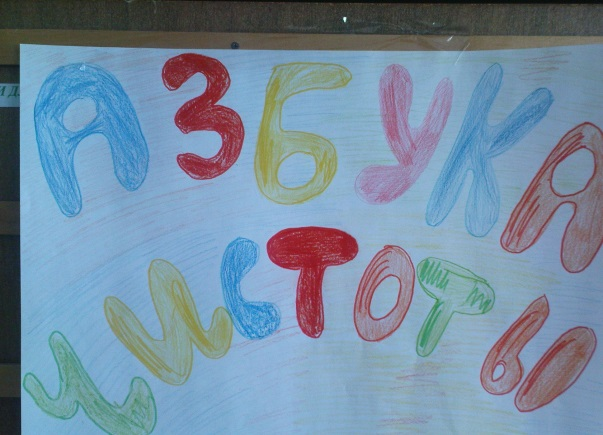 АЗБУКА
ЧИСТОТЫ